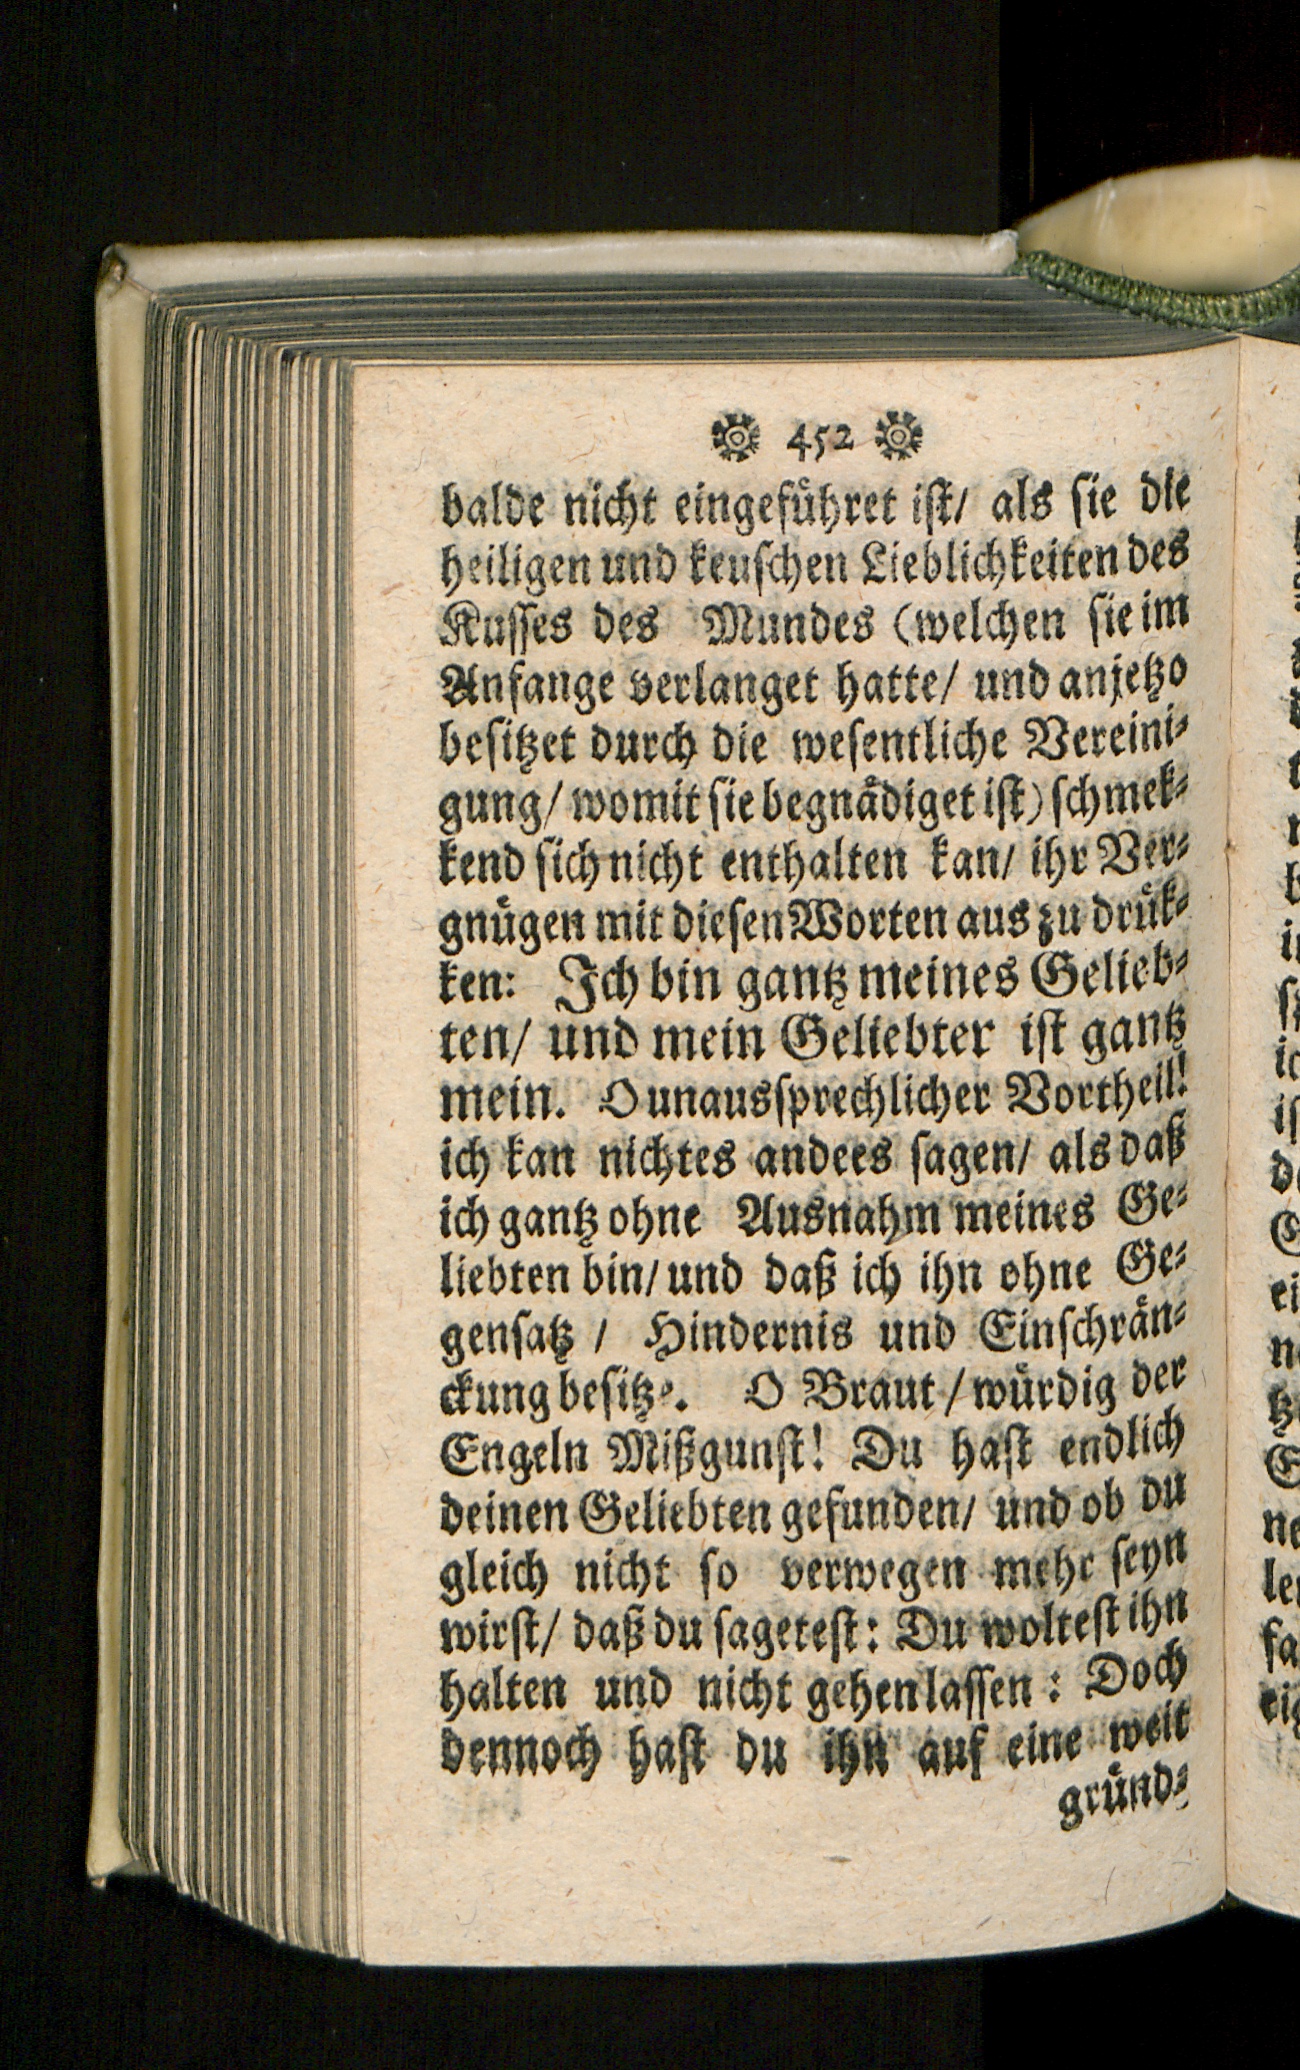 452
balde nicht eingefuͤhret iſt/ als ſie die
heiligen und keuſchen Lieblichkeiten des
Kuſſes des Mundes (welchen ſie im
Anfange verlanget hatte/ und anjetzo
beſitzet durch die weſentliche Vereini⸗
gung/ womit ſie begnaͤdiget iſt) ſchmek⸗
kend ſich nicht enthalten kan/ ihr Ver⸗
gnuͤgen mit dieſen Worten aus zu druͤk⸗
ken: Ich bin gantz meines Gelieb⸗
ten/ und mein Geliebter iſt gantz
mein. O unausſprechlicher Vortheil!
ich kan nichtes anders ſagen/ als daß
ich gantz ohne Ausnahm meines Ge⸗
liebten bin/ und daß ich ihn ohne Ge⸗
genſatz / Hindernis und Einſchraͤn⸗
ckung beſitze. O Braut / wuͤrdig der
Engeln Mißgunſt! Du haſt endlich
deinen Geliebten gefunden/ und ob du
gleich nicht ſo verwegen mehr ſeyn
wirſt/ daß du ſageteſt: Du wolteſt ihn
halten und nicht gehen laſſen: Doch
dennoch haſt du ihn auf eine weit
gruͤnd⸗